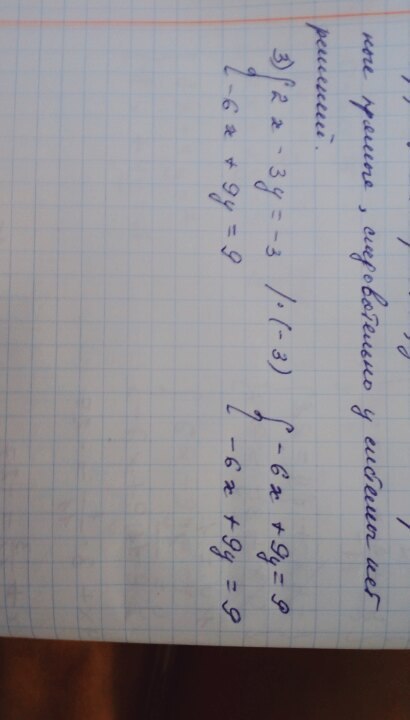 ные прямые, следовательно у системы нет
решений.
3) { 2x - 3y = -3 / · (-3) { -6x + 9y = 9
-6x + 9y = 9 -6x + 9y = 9